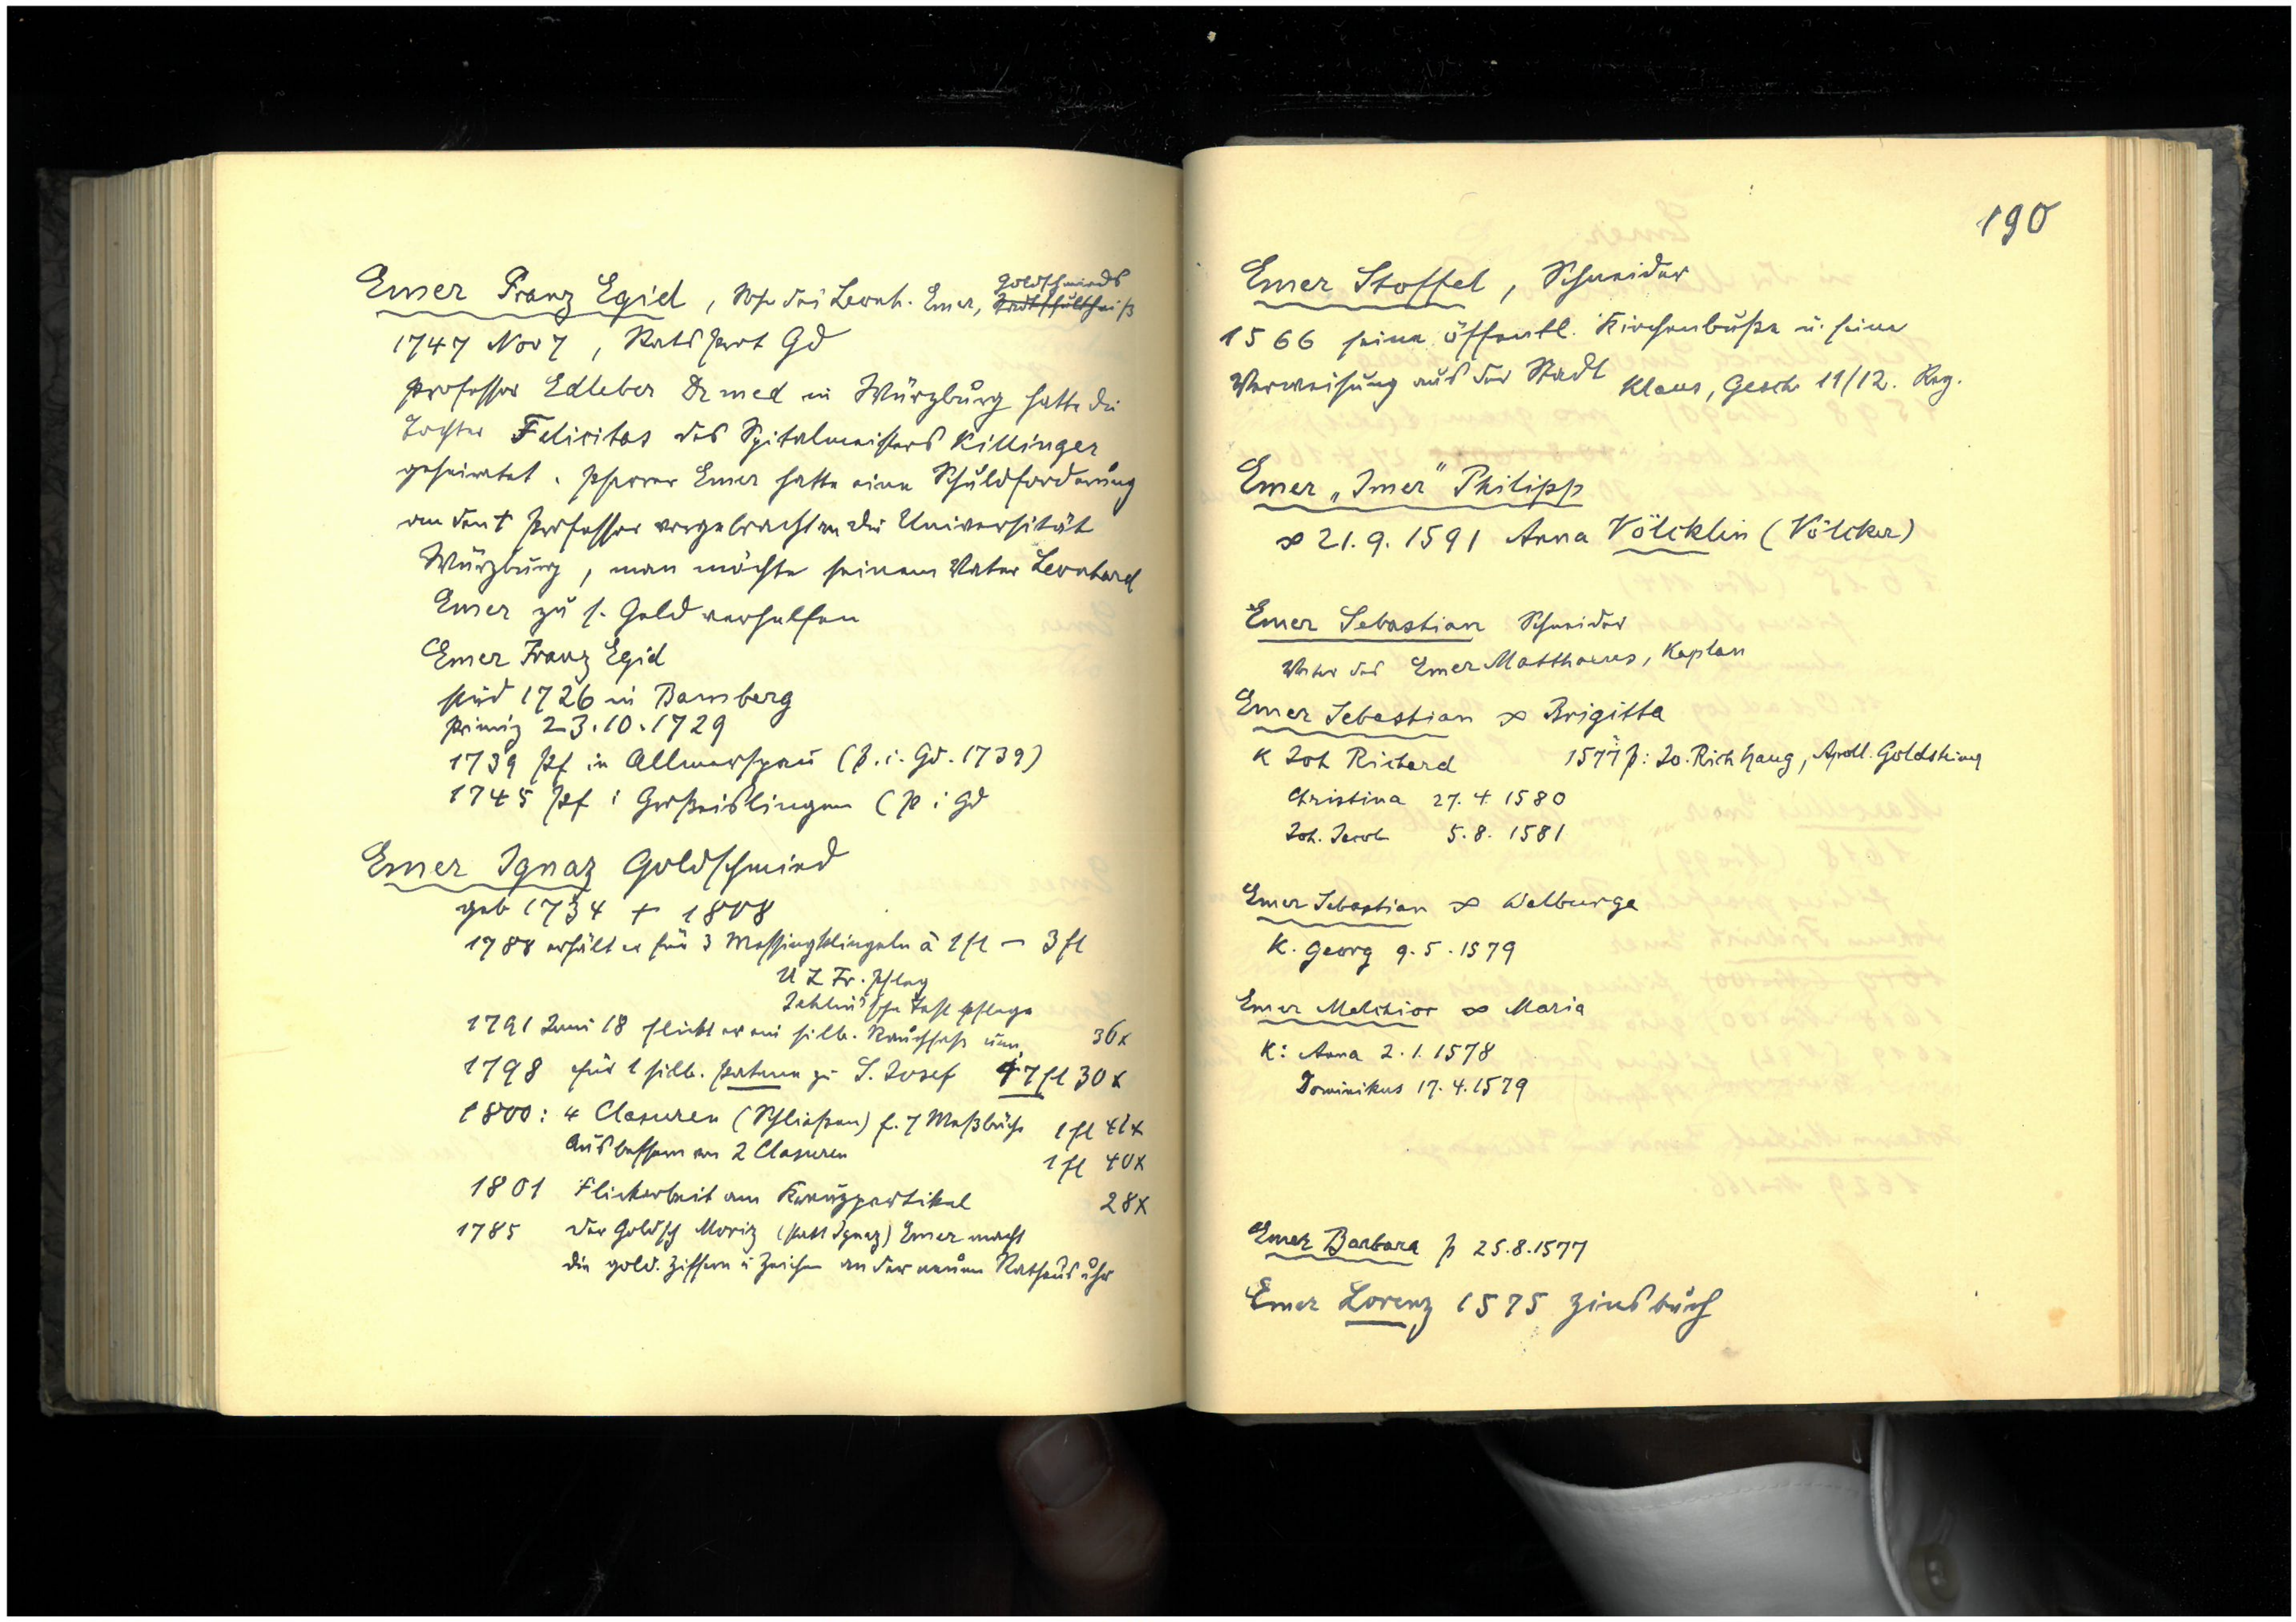 Emer Franz Egid, Sohn des Leonh. Emer, Goldschmieds Stadtschultheiß
1747 Nov 7, Rats Prot Gd
Professor Edleber Dr med in Würzburg hatte die
Tochter Felicitas des Spitalmeisters Killinger
geheiratet. Pfarrer Emer hatte eine Schuldforderung
an den † Professor vorgebracht an die Universität
Würzburg, man möchte seinem Vater Leonhard
Emer zu s. Geld verhelfen
Emer Franz Egid
stud 1726 in Bamberg
Primiz 23.10.1729
1739 Pf in Allmerspan (P.i.Gd.1739)
1745 Pf i Großeislingen (P i Gd
Emer Ignaz Goldschmied
geb 1734 + 1808
1788 erhält er für 3 Messingklingeln à 1 fl — 3 fl
U L Fr. Pfleg
pflege
1791 Juni 18 flickt er ein silb. Rauchfaß um 36x
1798 für 1 silb. Patene zu S. Josef 17 fl 30x
1800: 4 Clasuren (Schließen) f. 7 Meßbüch 1 fl 42x
Ausbessern von 2 Clasuren 1 fl 40x
1801 Flickarbeit am Kreuzpartikel 28x
1785 der Goldsch Moriz (statt Ignaz) Emer macht
die gold. Ziffern u Zeichen an der neuen Rathausuhr
190
Emer Stoffel, Schneider
1566 seine öffentl. Kirchenbuße u. seine
Verweisung aus der Stadt Klaus, Gesch 11/12. Reg.
Emer „Imer" Philipp
∞ 21.9.1591 Anna Völcklin (Völcker)
Emer Sebastian Schneider
Vater des Emer Matthaeus, Kaplan
Emer Sebastian ∞ Brigitta
K Joh Richard 1577 p: Jo. Rich Haug, Apoll. Goldsteing
Christina 27.4.1580
Joh. Jacob 5.8.1581
Emer Sebastian ∞ Walburga
K. Georg 9.5.1579
Emer Melchior ∞ Maria
K: Anna 2.1.1578
Dominikus 17.4.1579
Emer Barbara p 25.8.1577
Emer Lorenz 1575 Zinsbuch